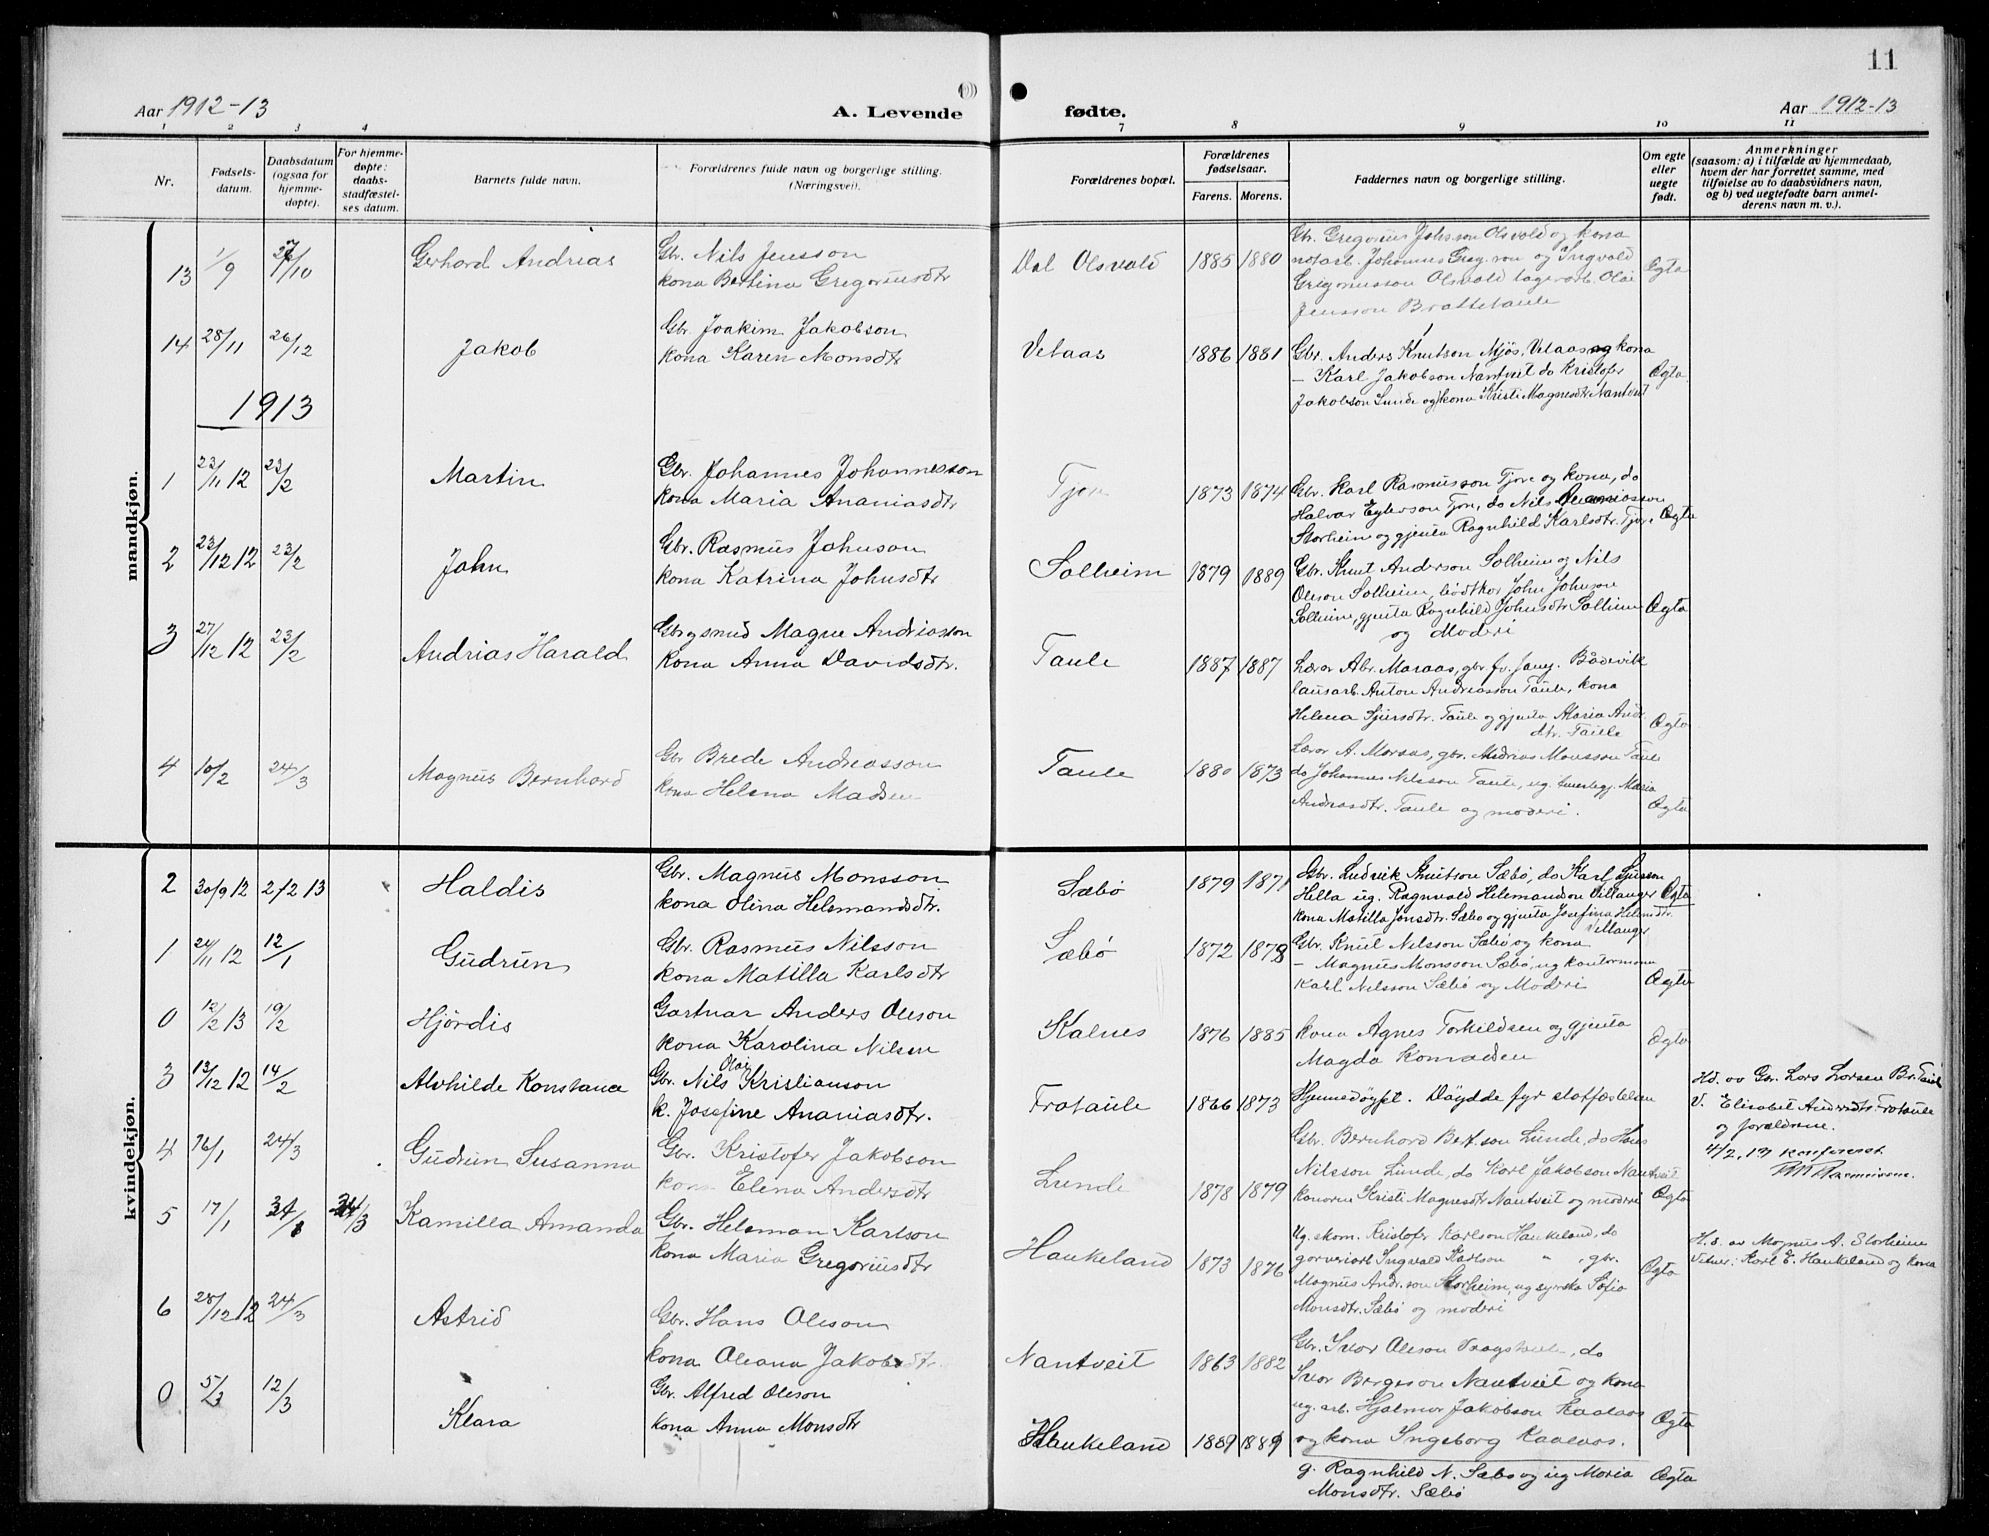 11
Aar 1912-13
A. Levende
fødte.
Aar 1912-13
1 2 3 4 7 8 9 10 11
Nr.
Fødsels-
datum.
Daabsdatum
(ogsaa for
hjemme-
døpte).
For hjemme-
døpte:
daabs-
stadfæstel-
ses datum.
Barnets fulde navn.
Forældrenes fulde navn og borgerlige stilling.
(Næringsvei).
Forældrenes bopæl.
Forældrenes
fødselsaar.
Farens. Morens.
Faddernes navn og borgerlige stilling.
Om egte
eller
uegte
født.
Anmerkninger
(saasom: a) i tilfælde av hjemmedaab,
hvem der har forrettet samme, med
tilføielse av to daabsvidners navn,
og b) ved uegtefødte barn anmel-
derens navn m. v.).
mandkjøn.
13 1/9 27/10 Gerhard Andrias
Gbr. Nils Jensson
kona Bertina Gregoriusdtr
Dal Olsvold 1885 1880
Gbr. Gregorius Johsson Olsvold og kona
notarb. Johannes Greg.son og Ingvald
Gregoriusson Olsvold lagerarb. Olai
Jensson Brattetaule
Egta
14 28/11 26/12 Jakob
Gbr. Joakim Jakobson
kona Karen Monsdtr
Vetaas 1886 1881
Gbr. Anders Knutson Mjøs, Vetaas og kona
— Karl Jakobson Nantveit do Kristofer
Jakobson Lunde og kona Kristi Magnesdtr Nantveit
Ægta
1913
1 23/11 12 23/2 Martin
Gbr. Johannes Johannesson
kona Maria Ananiasdtr
Tjore 1873 1874
Gbr. Karl Rasmusson Tjore og kona, do
Halvor Eylerson Tjore, do Nils Ananiasson
Storheim og gjenta Ragnhild Karlsdtr. Tjore
Ægta
2 23/12 12 23/2 John
Gbr. Rasmus Johnson
kona Katrina Johnsdtr
Solheim 1879 1889
Gbr. Knut Anderson Solheim og Nils
Oleson Solheim, bødtker John Johnson
Solheim, gjenta Ragnhild Johnsdtr Solheim
og Moderi
Ægta
3 27/12 12 23/2 Andrias Harald
Gbr. og smed Magne Andriasson
kona Anna Davidsdtr.
Taule 1887 1887
Lærar Abr. Maraas, gbr. fv. Janj. Bådsvik
lausarb. Anton Andriasson Taule, kona
Helena Sjursdtr. Taule og gjenta Maria Andr.
dtr. Taule
Ægta
4 10/2 24/3 Magnus Bernhard
Gbr Brede Andriasson
kona Helena Madsen
Taule 1880 1873
Lærar A. Maraas, gbr. Andrias Monsson Taule
do Johannes Nilsson Taule, ug. Maria
Andriasdtr. Taule og moderi.
Ægta
kvindekjøn.
2 30/9 12 2/2 13 Haldis
Gbr. Magnus Monsson
kona Olina Helmandsdtr.
Sæbø 1879 1871
Gbr. Ludvik Knutson Sæbø, do Karl Sjurson
Hella ug. Ragnvald Helemandson Villanger
kona Matilla Jonsdtr. Sæbø og gjenta Josefina Helmsdtr.
Villanger
Ægta
1 24/11 12 12/1 Gudrun
Gbr. Rasmus Nilsson
kona Matilla Karlsdtr
Sæbø 1872 1878
Gbr. Knut Nilsson Sæbø og kona
— Magnus Monsson Sæbø, ug kontormann
Karl Nilsson Sæbø og Moderi
Ægta
0 12/2 13 19/2 Hjördis
Gartnar Anders Oleson
kona Karolina Nilsen
Kalnes 1876 1885
kona Agnes Torkildsen og gjenta
Magda Konradsen
Ægta
3 13/12 12 14/2 Alvhilde Konstanca
Gbr. Nils Olai Kristianson
k. Josefine Ananiasdtr.
Frotaule 1866 1873
Hjemmedøypt. Døydde fyr stadfæstelsen
Hd. av Gbr. Lars Larsen Br. Taule
V. Elisabet Andersdtr. Frotaule
og foreldrene.
4/2, 17 konferert
Rasmussen.
4 16/1 24/3 Gudrun Susanna
Gbr. Kristofer Jakobson
kona Elena Andersdtr
Lunde 1878 1879
Gbr. Bernhard Bert.son Lunde, do Hans
Nilsson Lunde, do Karl Jakobson Nantveit
konorne Kristi Magnesdtr Nantveit og moderi
Ægta
5 17/1 24/3 Kamilla Amanda
Gbr. Heleman Karlson
kona Maria Gregoriusdtr
Haukeland 1873 1876
Ug. skom. Kristofer Karlson Haukeland, do
garveriarb Ingvald Karlson " gbr.
Magnus Andr.son Storheim, ug syerska Sofia
Monsdtr. Sæbø og moderi
Ægta
H. d. av Magnus A. Storheim
Vitner: Karl E. Haukeland og kona
6 28/12 12 24/3 Astrid
Gbr. Hans Oleson
kona Oleana Jakobsdtr.
Nantveit 1863 1882
Gbr. Ivar Oleson Vragstaule, do
Ivar Bergeson Nantveit og kona
ug. arb. Hjalmar Jakobson Kaalaas
og kona Ingeborg Kaalaas.
Ægta
0 5/3 12/3 Klara
Gbr. Alfred Oleson
kona Anna Monsdtr
Haukeland 1889 1889
g. Ragnhild N. Sæbø og ug Maria
Monsdtr. Sæbø
Ægta